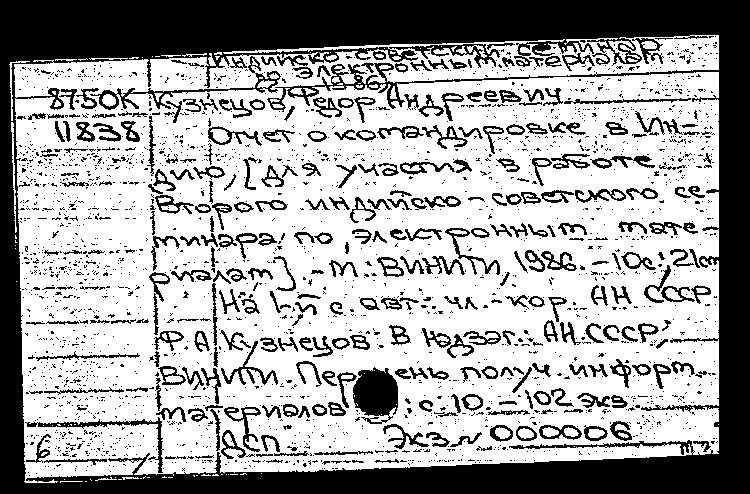 Индийско-советский семинар
по электронным материалам
(2, 1986)
8750К Кузнецов, Федор Андреевич
11838 Отчет о командировке в Ин-
дию, [для участия в работе
Второго индийско-советского се-
минара по электронным мате-
риалам]. - М.: ВИНИТИ, 1986. - 10с.; 21см
На 1-й с. авт.: чл.-кор. АН СССР
Ф.А. Кузнецов. В надзаг.: АН СССР,
ВИНИТИ. Перечень получ. информ.
материалов : с. 10 - 102 экз.
ДСП. Экз. № 000006
6